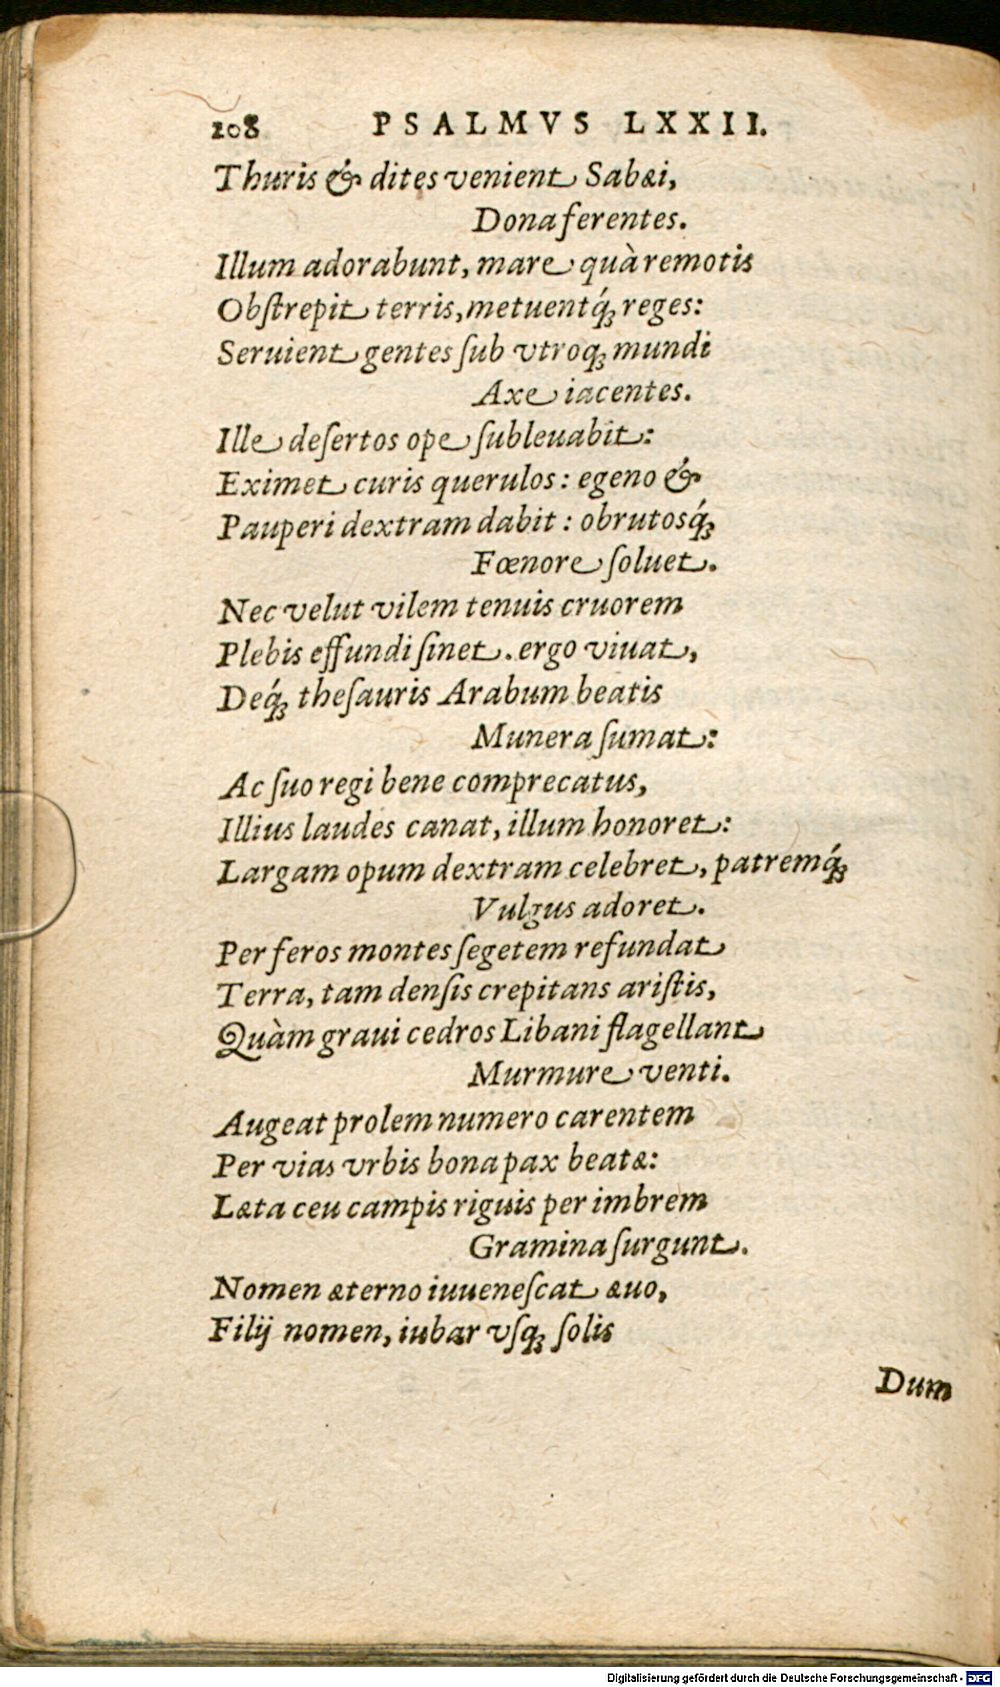 208 PSALMVS LXXII.
Thuris & dites venient Sabæi,
Dona ferentes.
Illum adorabunt, mare quà remotis
Obſtrepit terris, metuentq́; reges:
Seruient gentes ſub vtroq; mundi
Axe iacentes.
Ille deſertos ope ſubleuabit:
Eximet curis querulos: egeno &
Pauperi dextram dabit: obrutosq́;
Fœnore ſoluet.
Nec velut vilem tenuis cruorem
Plebis effundi ſinet. ergo viuat,
Deq́; theſauris Arabum beatis
Munera ſumat:
Ac ſuo regi bene comprecatus,
Illius laudes canat, illum honoret:
Largam opum dextram celebret, patremq́;
Vulgus adoret.
Per feros montes ſegetem refundat
Terra, tam denſis crepitans ariſtis,
Quàm graui cedros Libani flagellant
Murmure venti.
Augeat prolem numero carentem
Per vias vrbis bona pax beatæ:
Læta ceu campis riguis per imbrem
Gramina ſurgunt.
Nomen æterno iuueneſcat æuo,
Filij nomen, iubar vſq; ſolis
Dum
Digitalisierung gefördert durch die Deutsche Forschungsgemeinschaft - DFG